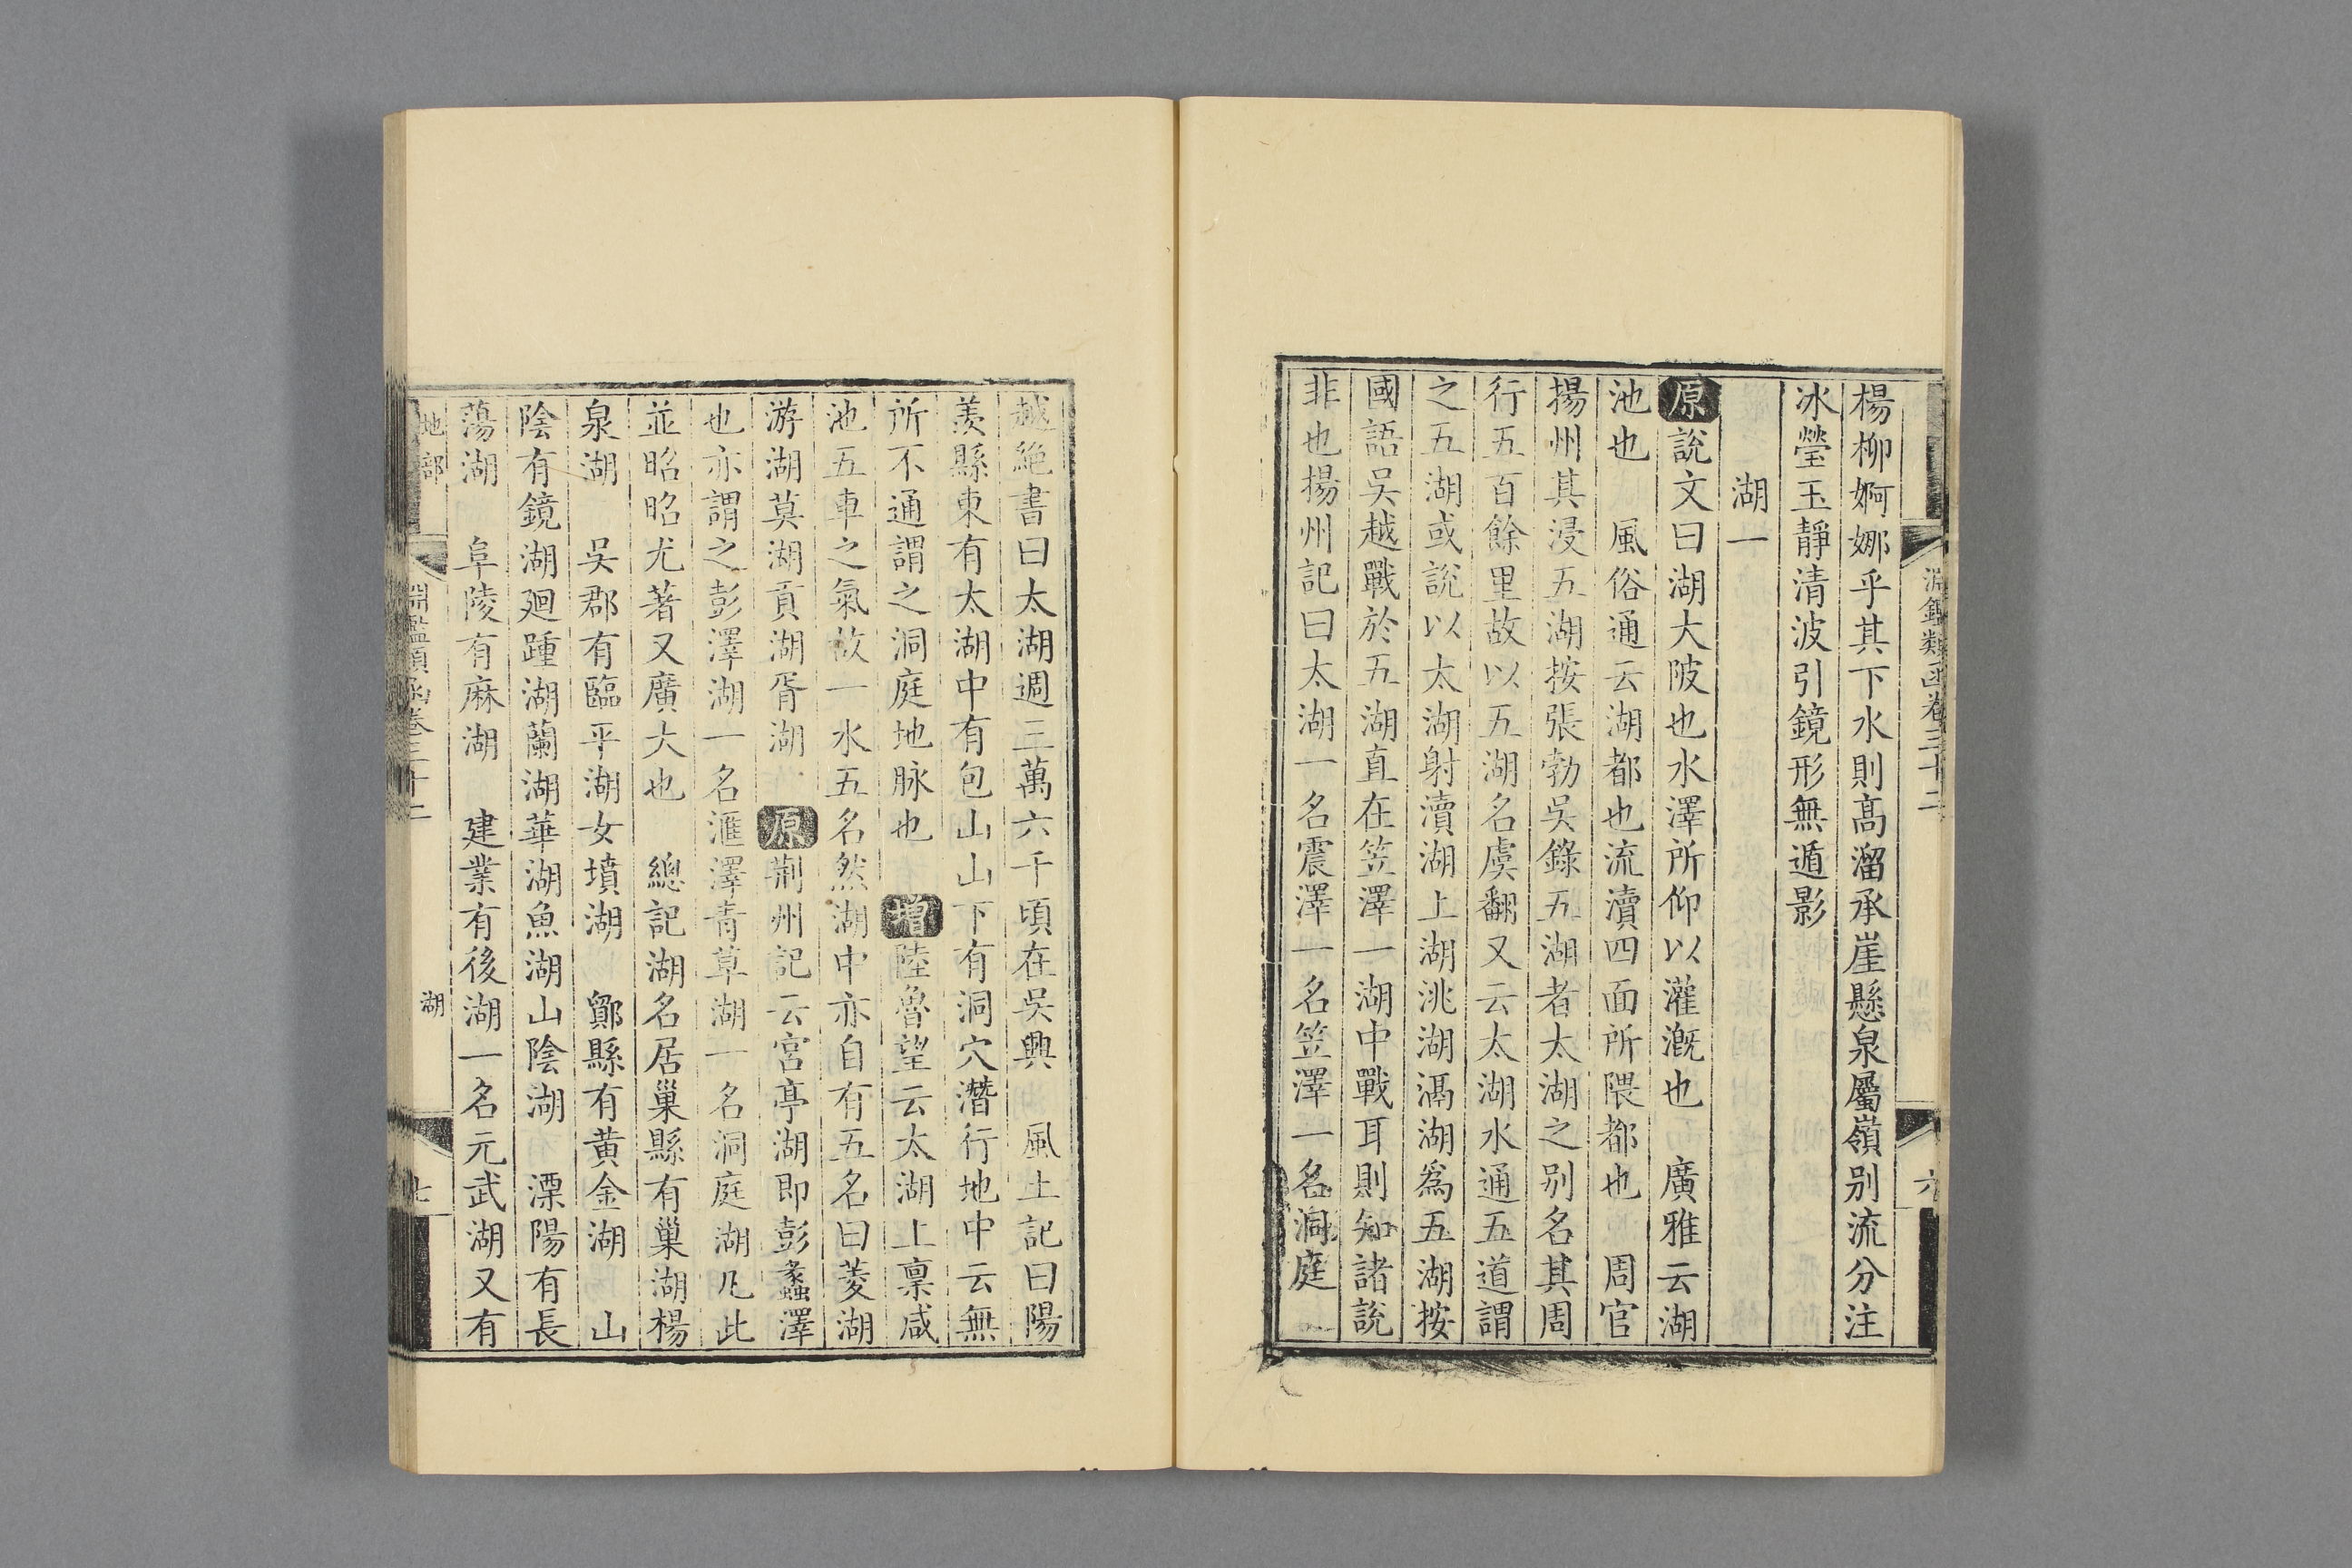 淵鑑類函卷三十二
六
楊柳婀娜乎其下水則高溜承崖懸泉屬嶺别流分注
冰瑩玉靜清波引鏡形無遁影
湖一
原說文曰湖大陂也水澤所仰以灌漑也 廣雅云湖
池也 風俗通云湖都也流瀆四面所隈都也 周官
揚州其浸五湖按張勃吳錄五湖者太湖之别名其周
行五百餘里故以五湖名虞翻又云太湖水通五道謂
之五湖或說以太湖射瀆湖上湖洮湖滆湖爲五湖按
國語吳越戰於五湖直在笠澤一湖中戰耳則知諸說
非也揚州記曰太湖一名震澤一名笠澤一名洞庭
越絶書曰太湖週三萬六千頃在吳興 風土記曰陽
羨縣東有太湖中有包山山下有洞穴潛行地中云無
所不通謂之洞庭地脉也 增陸魯望云太湖上禀咸
池五車之氣故一水五名然湖中亦自有五名曰菱湖
游湖莫湖貢湖胥湖 原荆州記云宮亭湖即彭蠡澤
也亦謂之彭澤湖一名滙澤青草湖一名洞庭湖凡此
並昭昭尤著又廣大也 總記湖名居巢縣有巢湖楊
泉湖 吳郡有臨平湖女墳湖 鄮縣有黄金湖 山
陰有鏡湖廻踵湖蘭湖華湖魚湖山陰湖 溧陽有長
蕩湖 阜陵有麻湖 建業有後湖一名元武湖又有
地部
淵鑑類函卷三十二
湖
七